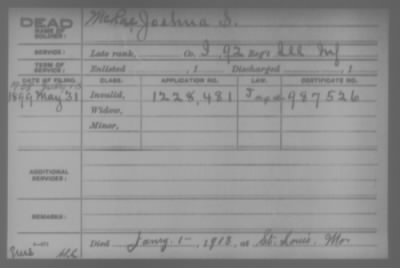 DEAD
NAME OF SOLDIER: McRae, Joshua S.
SERVICE: Late rank, Co. I, 92 Reg't Ill Inf
TERM OF SERVICE: Enlisted , 1 Discharged , 1
DATE OF FILING. CLASS. APPLICATION NO. LAW. CERTIFICATE NO.
1899 May 31 Invalid, 1228,481 987526
Widow,
Minor,
ADDITIONAL SERVICES:
REMARKS:
Died Janry. 1-, 1913, at St. Louis. Mo.